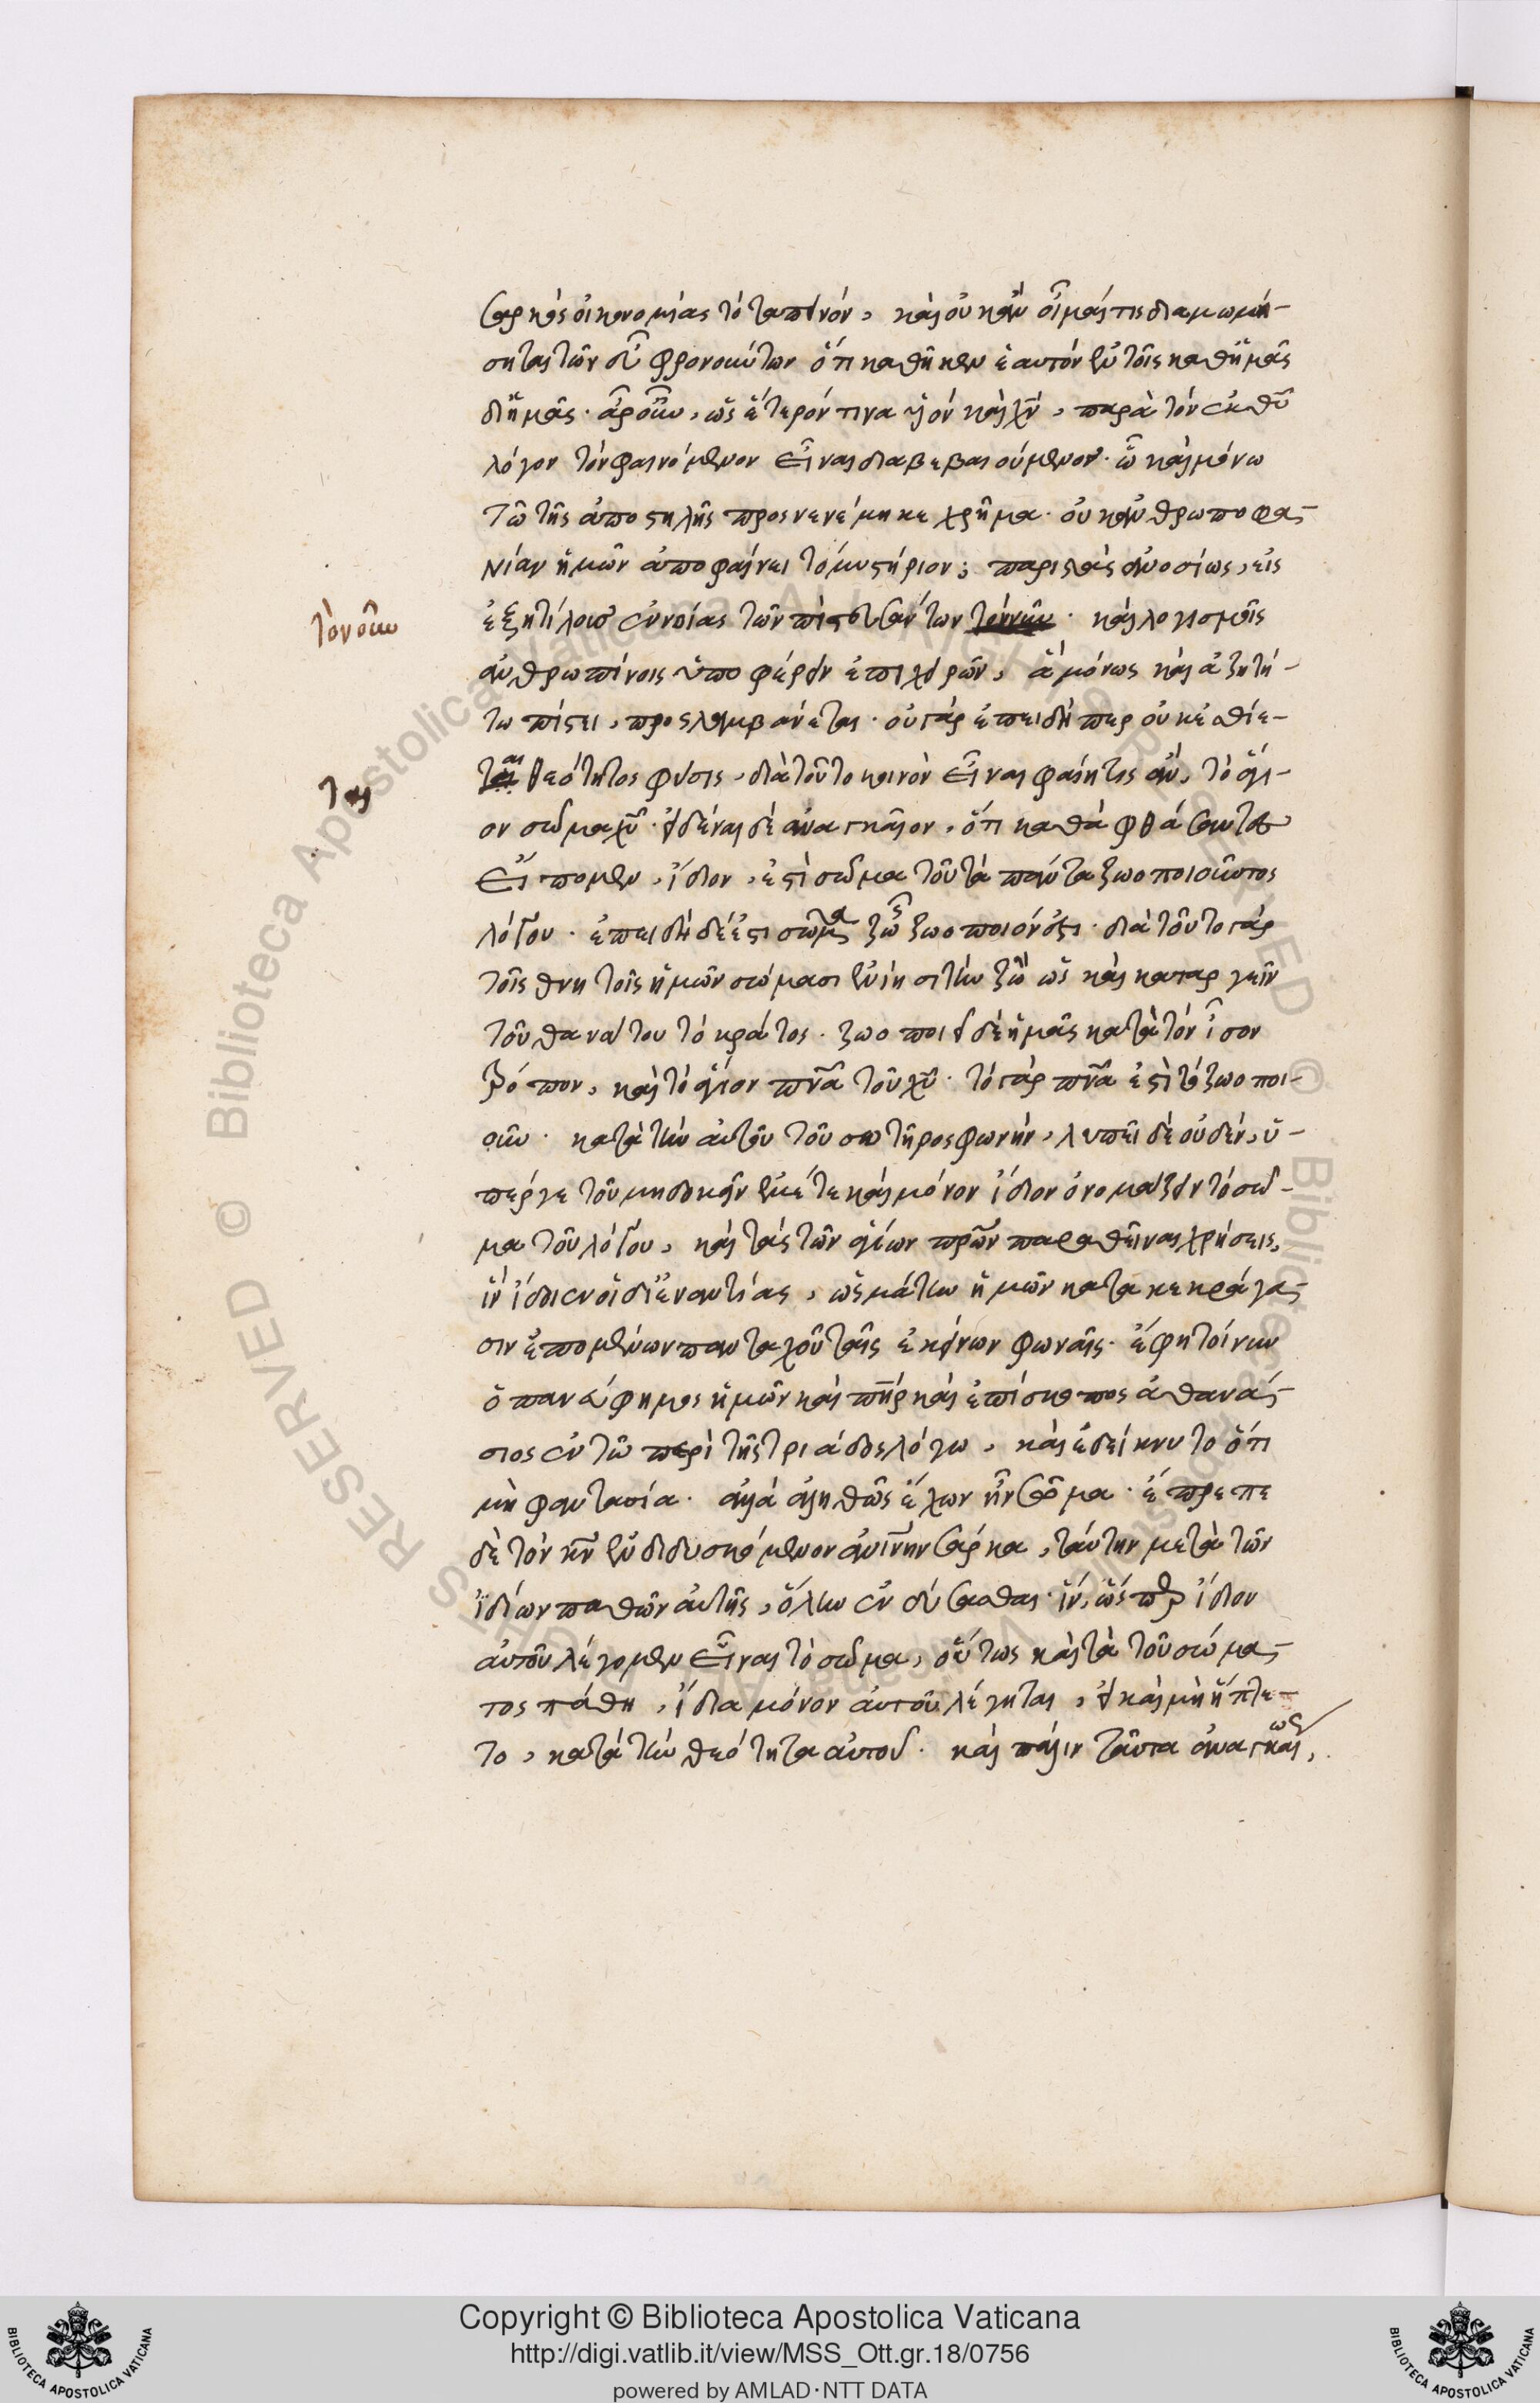 σαρκὸς οἰκονομίας τὸ ταπεινόν, καὶ οὐκ ἂν οἶμαί τις διαμωμή-
σηται τῶν εὖ φρονούντων ὅτι καθῆκεν ἑαυτὸν ἐν τοῖς καθ' ἡμᾶς
δι' ἡμᾶς. ἆρ' οὖν, ὡς ἕτερόν τινα υἱὸν καὶ χν, παρὰ τὸν ἐκ θυ
λόγον τὸν φαινόμενον εἶναι διαβεβαιούμενον. ᾧ καὶ μόνω
τὸ τῆς ἀποστολῆς προσνενέμηκε χρῆμα. οὐκ ἀνθρωποφα-
γίαν ἡμῶν ἀποφαίνει τὸ μυστήριον; παριστὰς ἀνοσίως, εἰς
ἐξητίλους ἐννοίας τῶν πιστευσάντων τὸν νοῦν. καὶ λογισμοῖς
τὸν νοῦν
ἀνθρωπίνοις ὑποφέρειν ἐπιχειρῶν, ἃ μόνως καὶ ἀζητή-
τω πίστει, προσλαμβάνεται. οὐ γὰρ ἐπειδήπερ οὐκ ἐσθίε-
ται θεότητος φύσις, διὰ τοῦτο κοινὸν εἶναι φαίη τις ἂν, τὸ ἅγι-
ται
ον σῶμα χυ. εἰδέναι δὲ ἀναγκαῖον, ὅτι καθὰ φθάσαντες
εἴπομεν, ἴδιον, ἐστὶ σῶμα τοῦ τὰ πάντα ζωοποιοῦντος
λόγου. ἐπειδὴ δέ ἐστι σῶμα ζωῆς ζωοποιόν ἐστι. διὰ τοῦτο γὰρ
τοῖς θνητοῖς ἡμῶν σώμασι ἐνίησι τὴν ζωὴν ὡς καὶ καταργεῖν
τοῦ θανάτου τὸ κράτος. ζωοποιεῖ δὲ ἡμᾶς κατὰ τὸν ἶσον
τρόπον, καὶ τὸ ἅγιον πνα τοῦ χυ. τὸ γὰρ πνα ἐστὶ τὸ ζωοποι-
οῦν. κατὰ τὴν αὐτοῦ τοῦ σωτῆρος φωνήν, λυπεῖ δὲ οὐδέν, ὑ-
πέρ γε τοῦ μὴ δοκεῖν ἐμέ τε καὶ μόνον ἴδιον ὀνομάζειν τὸ σῶ-
μα τοῦ λόγου, καὶ τὰς τῶν ἁγίων πρων παραθεῖναι χρήσεις,
ἵν' ἴδοιεν οἱ δι' ἐναντίας, ὡς μάτην ἡμῶν κατακεκράγα-
σιν ἑπομένων πανταχοῦ ταῖς ἐκείνων φωναῖς. ἔφη τοίνυν
ὁ πανεύφημος ἡμῶν καὶ πηρ καὶ ἐπίσκοπος ἀθανά-
σιος ἐν τῶ περὶ τῆς τριάδος λόγω, καὶ ἐδείκνυτο ὅτι
μὴ φαντασία. ἀλλὰ ἀληθῶς ἔχων ἦν σῶμα. ἔπρεπε
δὲ τὸν κν ἐνδιδυσκόμενον ἀνινην σάρκα, ταύτην μετὰ τῶν
ἰδίων παθῶν αὐτῆς, ὅλην ἐνδύσασθαι. ἵν', ὥσπερ ἴδιον
αὐτοῦ λέγομεν εἶναι τὸ σῶμα, οὕτως καὶ τὰ τοῦ σώμα-
τος πάθη, ἴδια μόνον αὐτοῦ λέγηται, εἰ καὶ μὴ ἥπτε-
το, κατὰ τὴν θεότητα αὐτοῦ. καὶ πάλιν ταῦτα ἀναγκαίως,
Copyright © Biblioteca Apostolica Vaticana
http://digi.vatlib.it/view/MSS_Ott.gr.18/0756
powered by AMLAD·NTT DATA